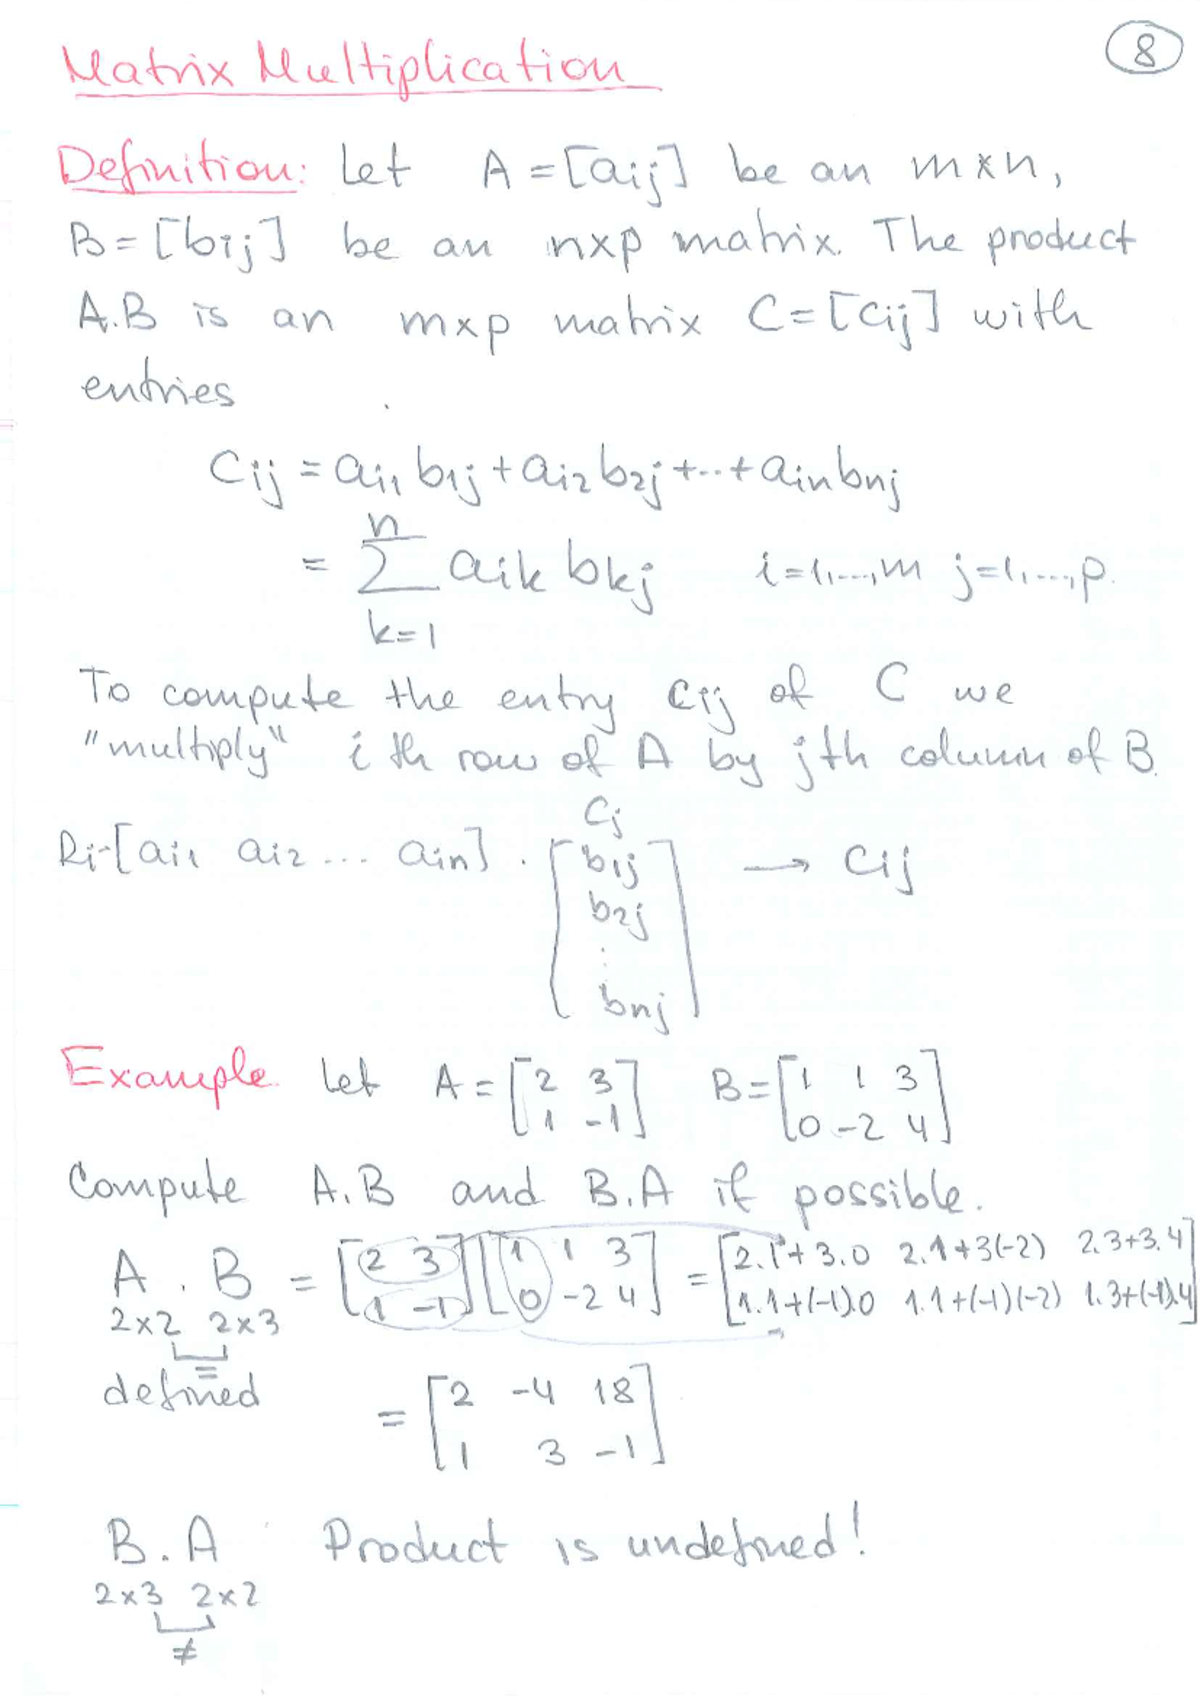 8
Matrix Multiplication
Definition: Let A = [aij] be an m×n,
B = [bij] be an n×p matrix. The product
A.B is an m×p matrix C = [cij] with
entries
Cij = ai1 b1j + ai2 b2j + ... + ain bnj
= n∑k=1 aik bkj i=1,...,m j=1,...,p.
To compute the entry cij of C we
"multiply" i th row of A by jth column of B.
Cj
Ri-[ai1 ai2 ... ain] . [b1j → cij
b2j
⋮
bnj]
Example. Let A = [2 3 B = [1 1 3
1 -1] 0 -2 4]
Compute A.B and B.A if possible.
A . B = [2 3 [1 1 3 = [2.1+3.0 2.1+3(-2) 2.3+3.4
2×2 2×3 1 -1] 0 -2 4] 1.1+(-1).0 1.1+(-1)(-2) 1.3+(-1).4]
=
defined = [2 -4 18
1 3 -1]
B . A Product is undefined!
2×3 2×2
≠